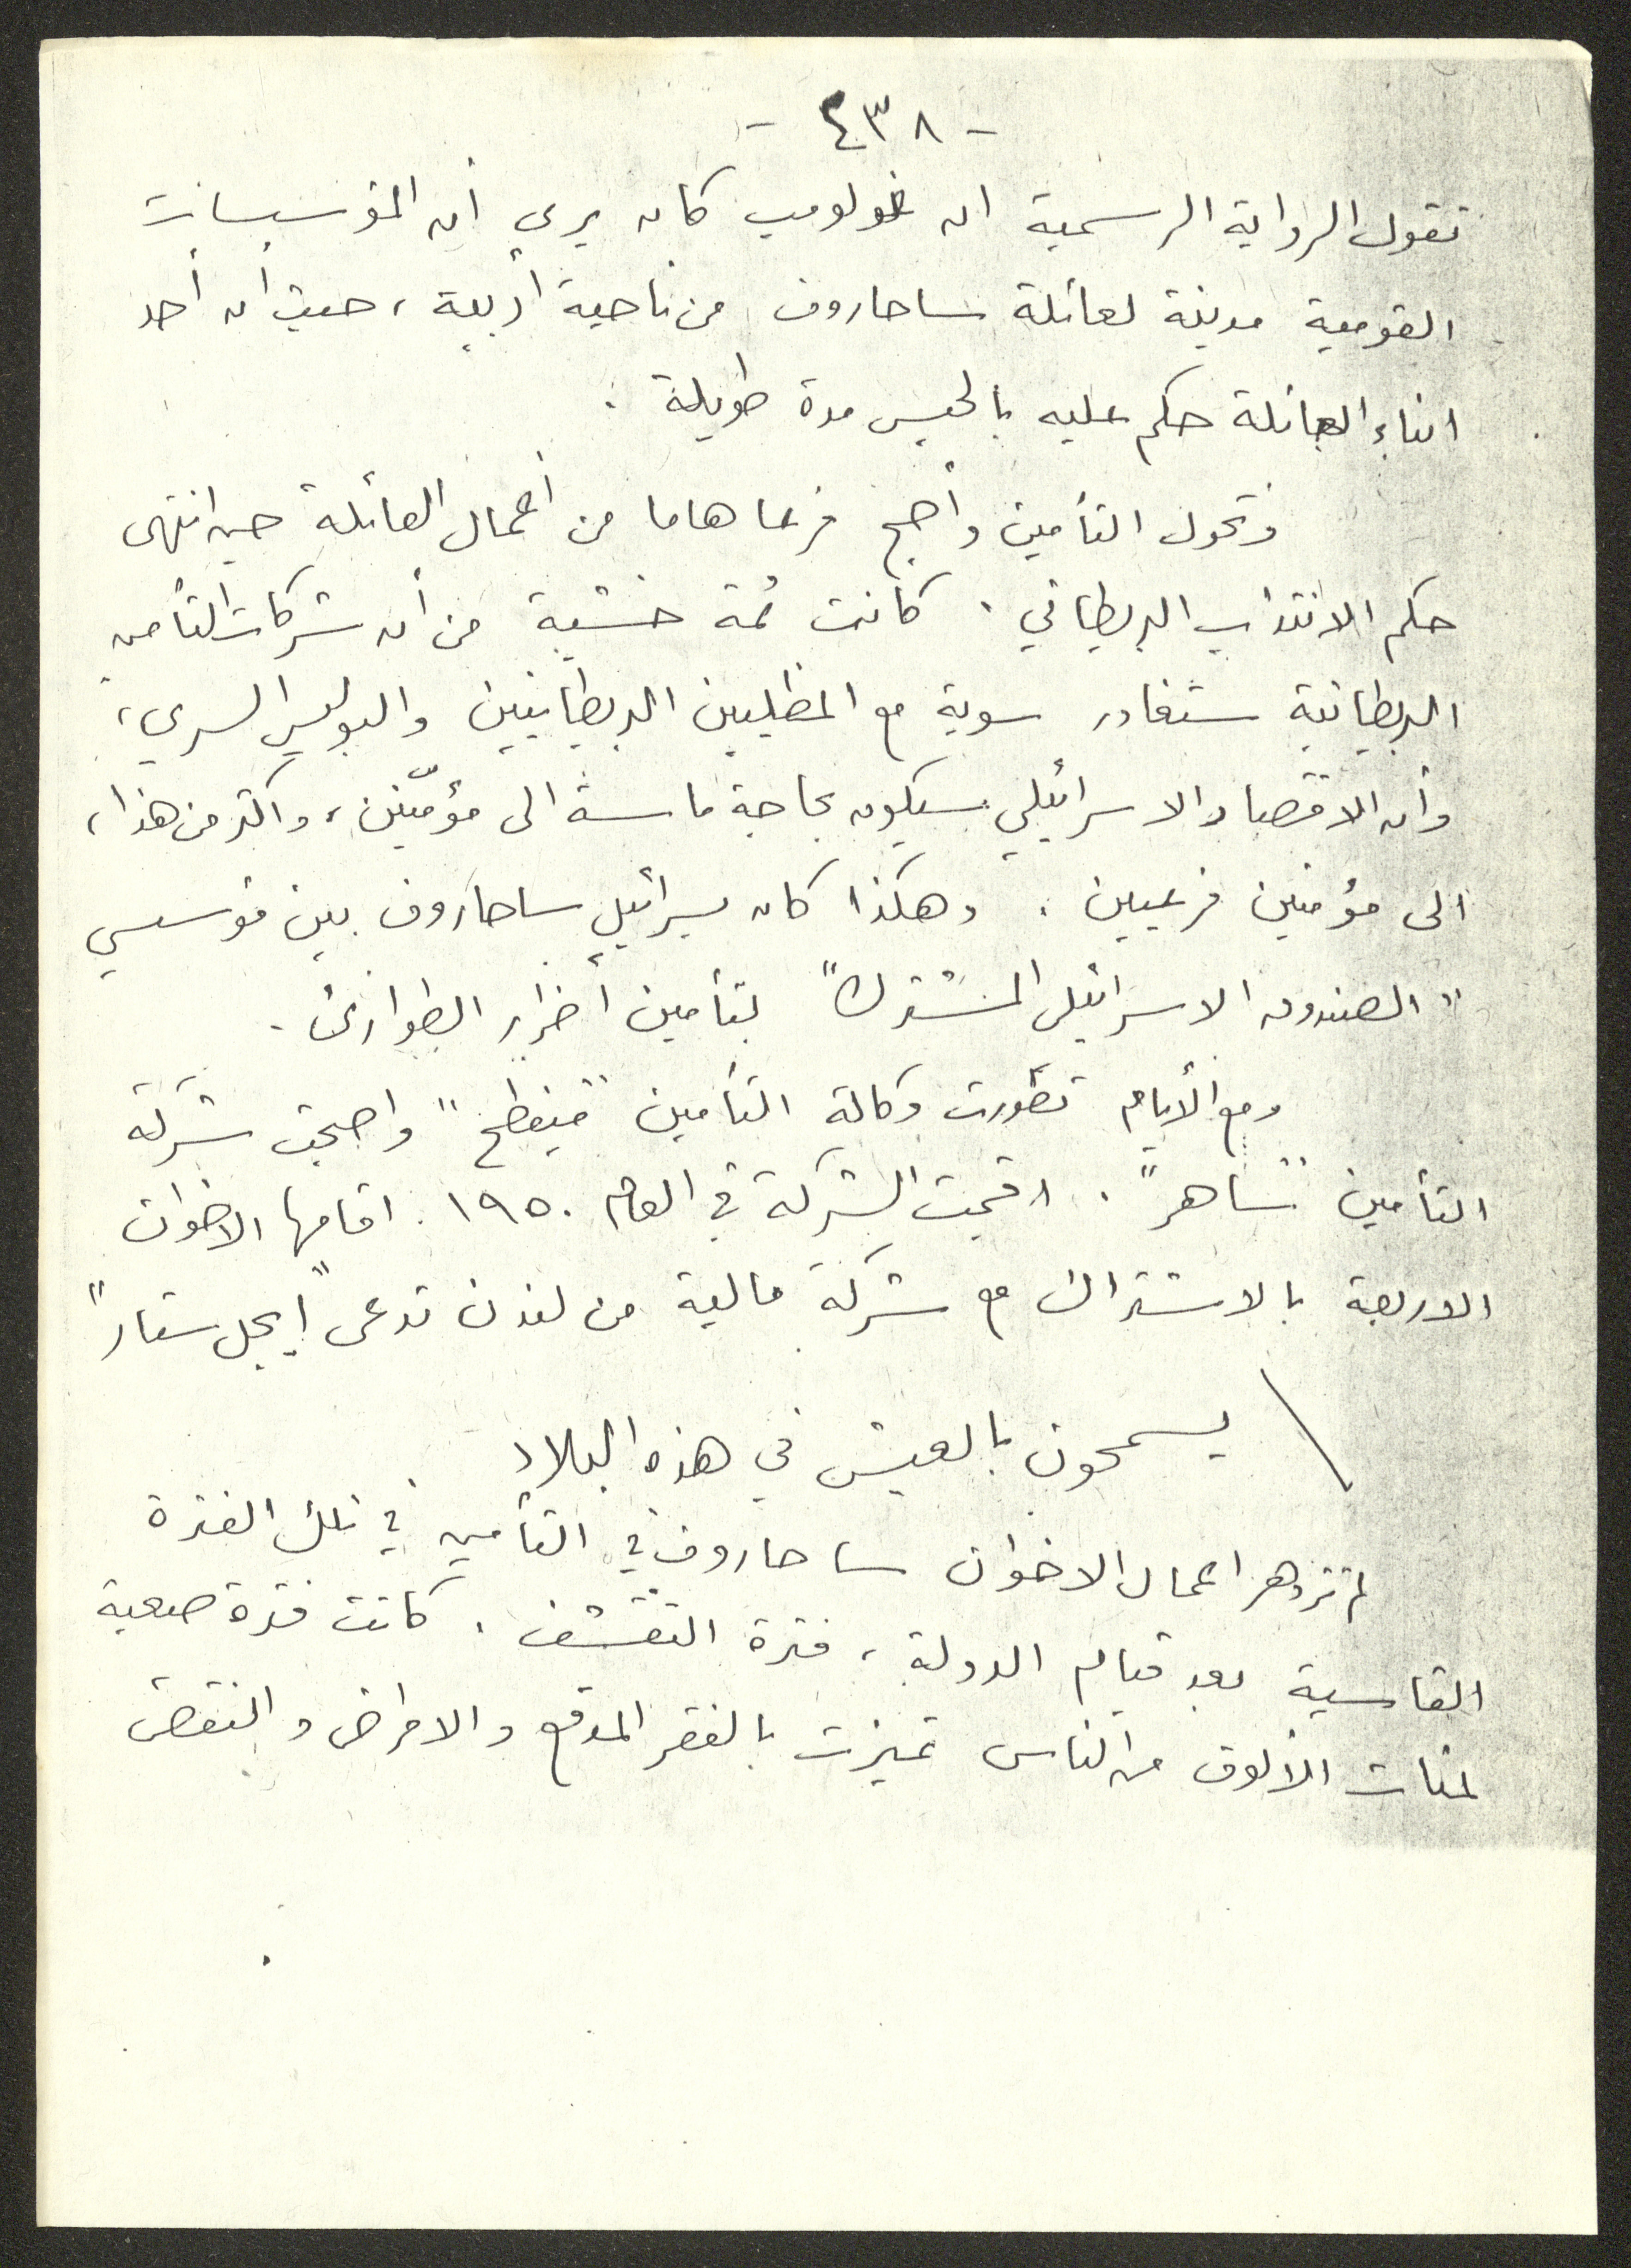 - ٤٣٨ -
تقول الرواية الرسمية ان غولومب كان يرى أن المؤسسات
القومية مدينة لعائلة ساحاروف من ناحية أدبية، حيث ان أحد
ابناء العائلة حكم عليه بالحبس مدة طويلة.
وتحول التأمين وأصبح فرعا هاما من أعمال العائلة حين انتهى
حكم الانتداب البريطاني. كانت ثمة خشية من أن شركات التأمين
البريطانية ستغادر سوية مع المظليين البريطانيين والبوليس السري،
وأن الاقتصاد الاسرائيلي سيكون بحاجة ماسة الى مؤمّنين، واكثر من هذا،
الى مؤمنين فرعيين. وهكذا كان يسرائيل ساحاروف بين مؤسسي
"الصندوق الاسرائيلي المشترك" لتأمين أضرار الطوارئ.
ومع الأيام تطورت وكالة التأمين "مينطح" واصبحت شركة
التأمين "ساهر". اقيمت الشركة في العام ١٩٥٠. اقامها الاخوان
الاربعة بالاشتراك مع شركة مالية من لندن تدعى "ايجل ستار"
يسمحون بالعيش في هذه البلاد
لم تزدهر اعمال الاخوان ساحاروف في التأمين في تلك الفترة
القاسية بعد قيام الدولة، فترة التقشف. كانت فترة صعبة
لمئات الألوف من الناس تميزت بالفقر المدقع والامراض والنقص